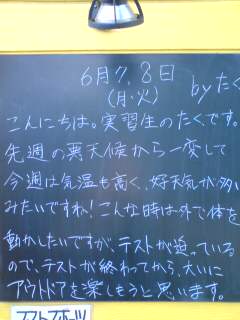 6月7,8日
(月・火)
byたく
こんにちは。実習生のたくです。
先週の悪天候から一変して
今週は気温も高く、好天気が多い
みたいですね!こんな時は外で体を
動かしたいですが、テストが迫っている
ので、テストが終わってから、大いに
アウトドアを楽しもうと思います。